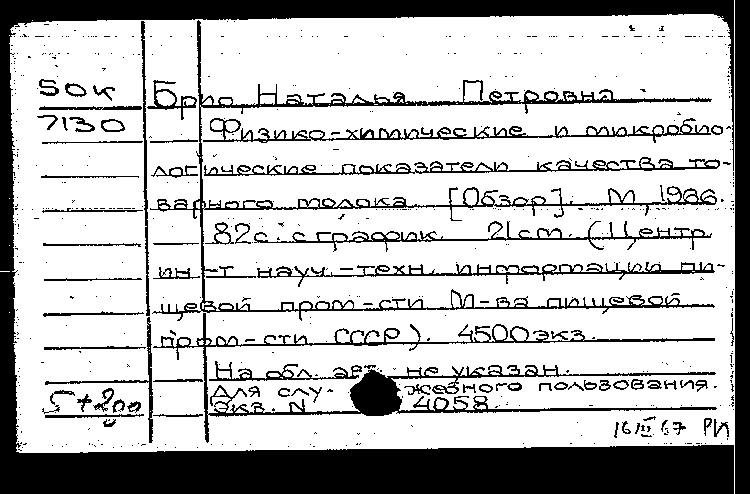 50к Брио, Наталья Петровна
7130 Физико-химические и микробио-
логические показатели качества то-
варного молока [Обзор]. М, 1966.
82с. с график. 21см. (Центр.
ин-т науч.-техн. информации пи-
щевой пром-сти М-ва пищевой
пром-сти СССР). 4500экз.
На обл. авт. не указан.
Для слу-жебного пользования.
5+200 Экз. N 4058.
16 III 67 РИ